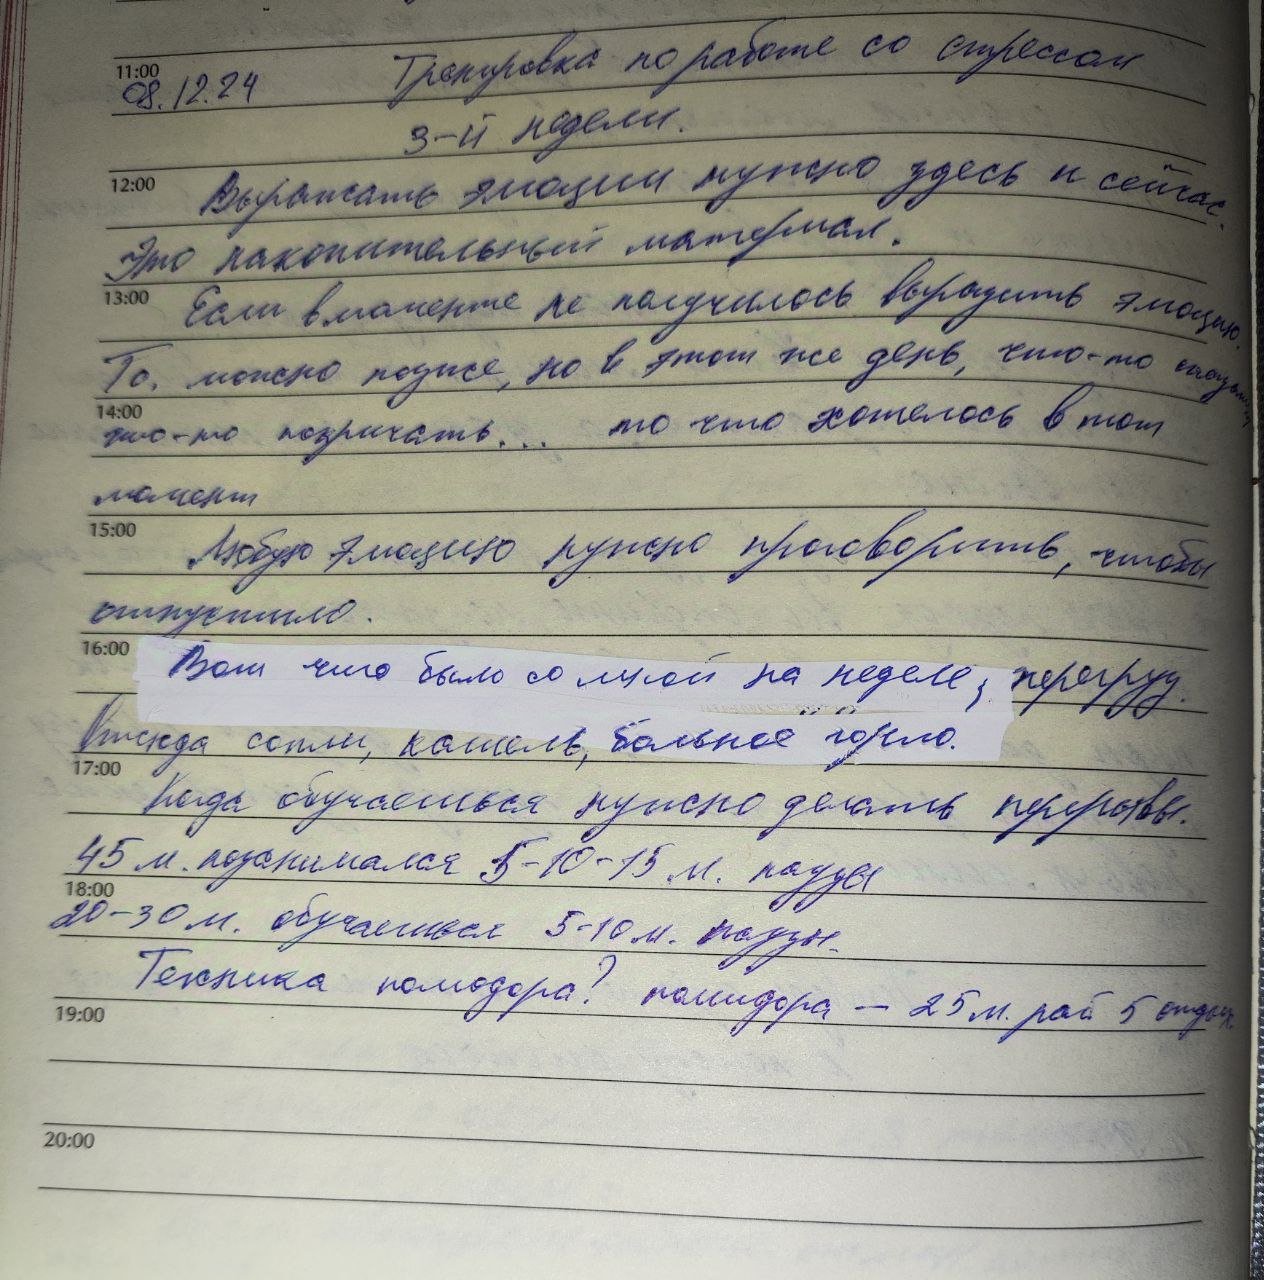 11:00
08.12.24 Тренировка по работе со стрессом
3-й недели.
12:00
Выражать эмоции нужно здесь и сейчас.
Это накопительный материал.
13:00
Если в моменте не получилось выразить эмоцию.
То, можно позже, но в этот же день, что-то
14:00
что-то покричать... то что хотелось в тот
момент
15:00
Любую эмоцию нужно проговорить, чтобы
отпустило.
16:00
Вот что было со мной на неделе, перегруз.
Отсюда сопли, кашель, больное горло.
17:00
Когда обучаешься нужно делать перерывы.
45 м. позанимался 5-10-15 м. паузы
18:00
20-30 м. обучаешься 5-10 м. паузы.
Техника помодора? помидора — 25 м. раб 5 отдых
19:00
20:00